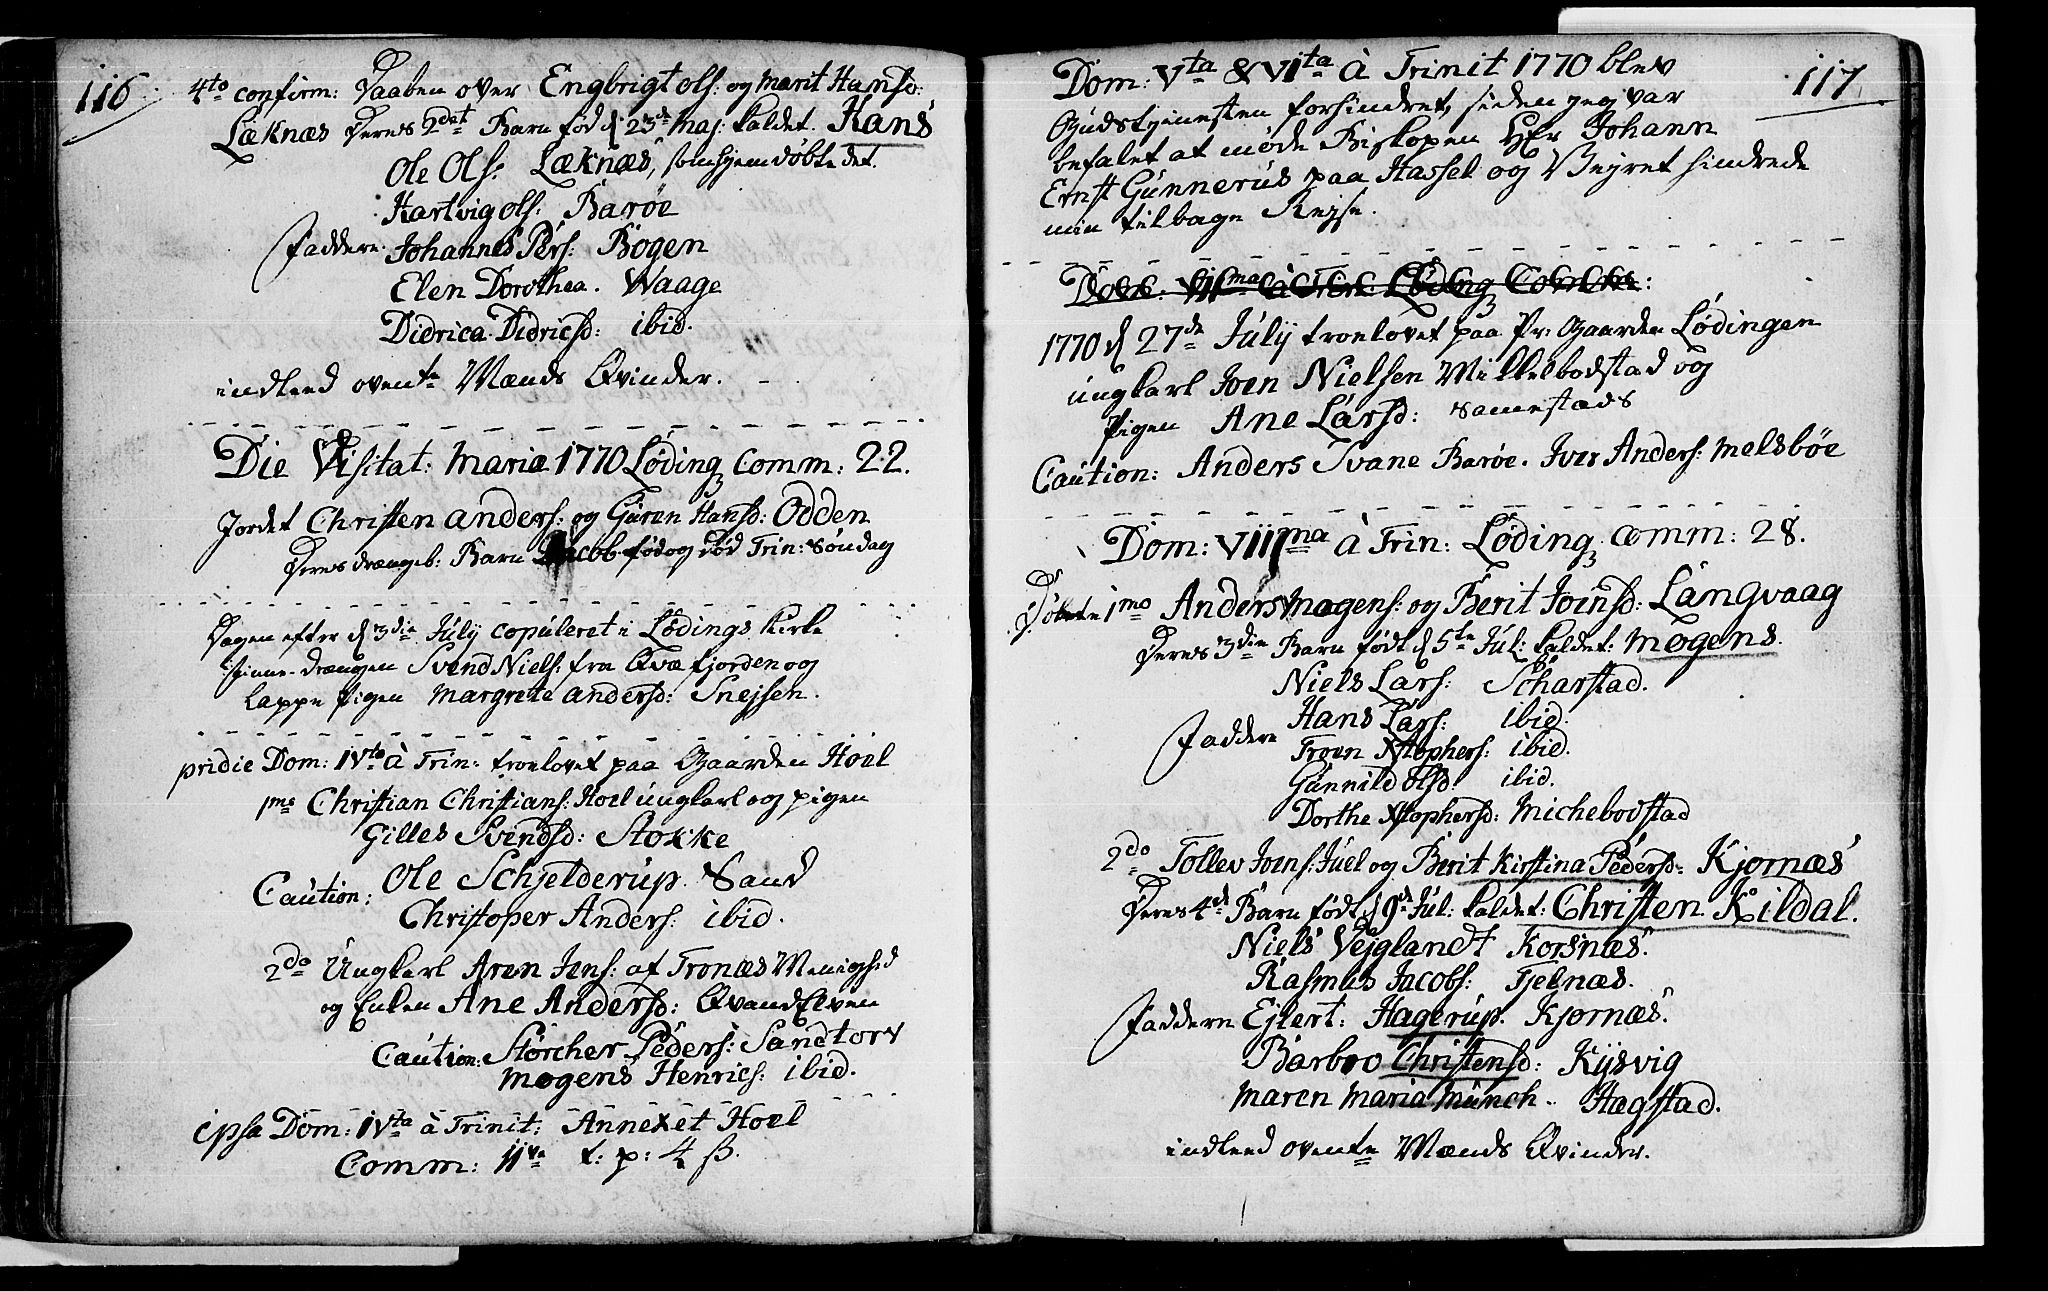 116
4to confirm: Daaben over Engbrigt Ols: og Marit Hansd:
Læknæs Deres 2det Barn fød d 23de Maj: kaldet. Hans
Ole Ols: Læknæs, som hjemdøbte det.
Hartvig Ols: Barøe
Faddere. Johannes Pers: Bogen
Elen Dorothea. Waage
Didrica Didricsd: ibid.
indleed ovente Mænds Qvinder.
Die Visitat: Mariæ 1770 Løding comm: 22.
Jordet Christen Anders: og Guren Hansd: Odden
Deres drængeb: Barn Jacob fød og død Trin: Søndag
Dagen efter d 3die July copuleret i Lødings Kirke
Finne-Drængen Svend Niels: fra Qvæfjorden og
Lappe Pigen Margrete Andersd: Snejsen.
pridie Dom: IVta à Trin: troelovet paa Gaarden Hoel
1mo Christian Christians: Hoel ungkarl og pigen
Gilles Svendsd: Stokke
Caution: Ole Schjelderup. Sand
Christoper Anders: ibid.
2do Ungkarl Aren Jens: af Tronæs Menighed
og Enken Ane Andersd: Qvandelven
Caution: Störcher Peders: Sandtorv
Mogens Henrics: ibid.
ipsa Dom: IVta à Trinit: Annexet Hoel
Comm: 11ve t: p: 4 ß.
117
Dom: Vta & VIta à Trinit 1770 blev
Gudstjenesten forhindret, siden jeg var
befalet at møde Biskopen Hr Johann
Ernst Gunnerus paa Hassel og Vejret hindrede
min tilbage Rejse.
1770 d 27de July troelovet paa Pr: Gaarden Lødingen
ungkarl Joen Nielsen Mikkelbodstad og
Pigen Ane Larsd: samestads
Caution: Anders Svane Barøe. Iver Anders: Melsbøe
Dom: VIIma à Trin: Løding comm: 28.
Døbte 1mo Anders Mogens: og Berit Joensd: Langvaag
Deres 3die Barn født d 5te Jul: kaldet: Mogens.
Niels Lars: Scharstad.
Hans Lars: ibid.
Faddere Troen Xstophers: ibid.
Gunnild Olsd: ibid.
Dorthe Xstophersd: Michebodstad
2do Tollev Joens: Juel og Berit Kirstina Pedersd: Kjornæs
Deres 4de Barn født d 9de Jul: kaldet: Christen Kildal.
Niels Vejglandt Korsnæs.
Rasmus Jacobs: Fjelnæs.
Faddere Ejlert: Hagerup. Kjornæs.
Barbro Christensd: Kysvig
Maren Maria Münch. Hægstad.
indleed ovente Mænds Qvinder.